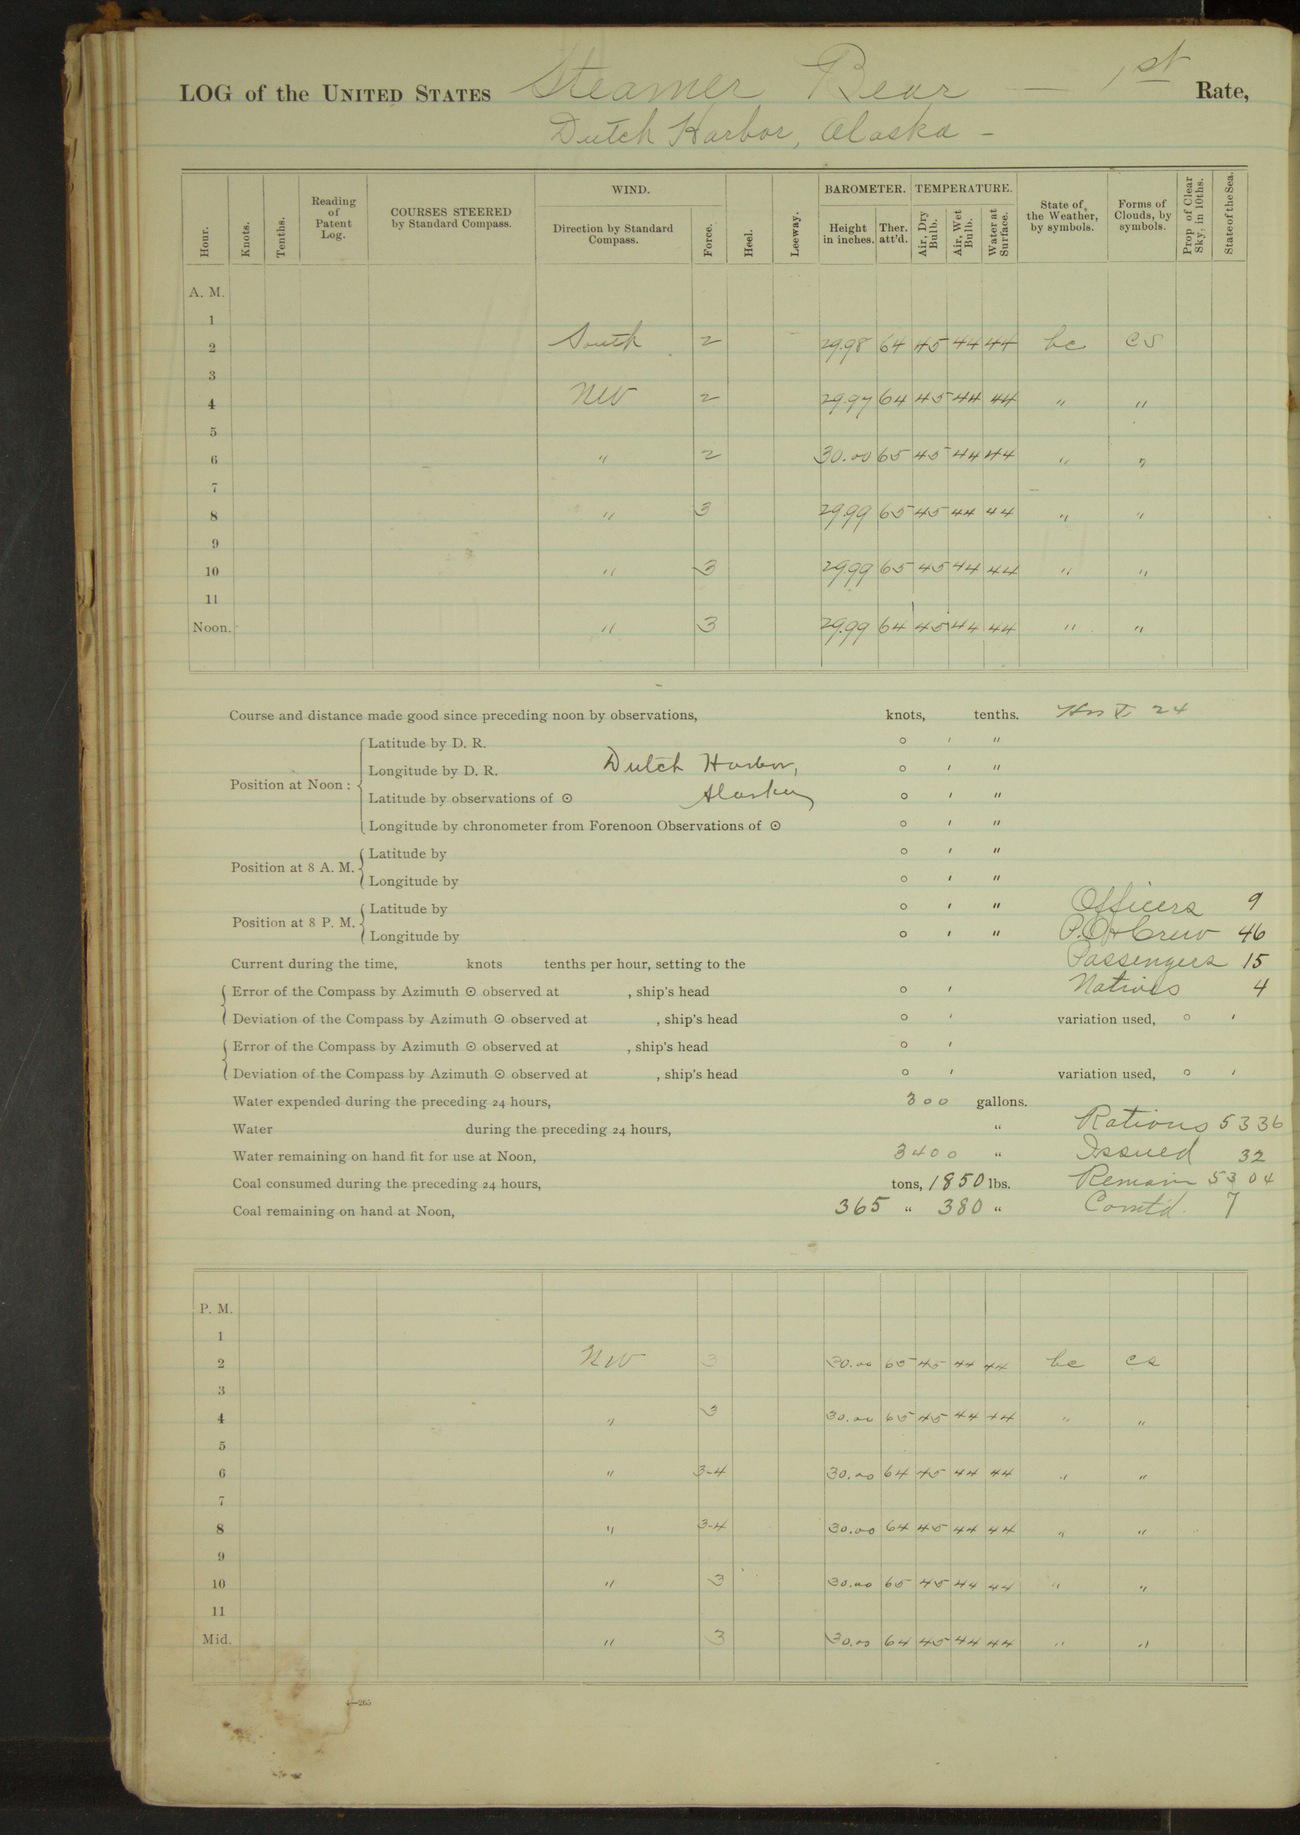 LOG of the UNITED STATES Steamer Bear — 1st Rate,
Dutch Harbor, Alaska -
Hour. Knots. Tenths. Reading of Patent Log. COURSES STEERED by Standard Compass. WIND. Direction by Standard Compass. Force. Heel. Leeway. BAROMETER. Height in inches. Ther. att'd. TEMPERATURE. Air, Dry Bulb. Air, Wet Bulb. Water at Surface. State of the Weather, by symbols. Forms of Clouds, by symbols. Prop of Clear Sky, in 10ths. State of the Sea.
A. M.
1
2 South 2 29.98 64 45 44 44 bc cs
3
4 NW 2 29.97 64 45 44 44 " "
5
6 " 2 30.00 65 45 44 44 " "
7
8 " 3 29.99 65 45 44 44 " "
9
10 " 3 29.99 65 45 44 44 " "
11
Noon. " 3 29.99 64 45 44 44 " "
Course and distance made good since preceding noon by observations, knots, tenths. 24
Position at Noon: Latitude by D. R. ° ' "
Longitude by D. R. Dutch Harbor, ° ' "
Latitude by observations of ☉ Alaska ° ' "
Longitude by chronometer from Forenoon Observations of ☉ ° ' "
Position at 8 A. M. Latitude by ° ' "
Longitude by ° ' "
Position at 8 P. M. Latitude by ° ' " Officers 9
Longitude by ° ' " P.O & Crew 46
Current during the time, knots tenths per hour, setting to the Passengers 15
Error of the Compass by Azimuth ☉ observed at , ship's head ° ' Natives 4
Deviation of the Compass by Azimuth ☉ observed at , ship's head ° ' variation used, ° '
Error of the Compass by Azimuth ☉ observed at , ship's head ° '
Deviation of the Compass by Azimuth ☉ observed at , ship's head ° ' variation used, ° '
Water expended during the preceding 24 hours, 300 gallons.
Water during the preceding 24 hours, " Rations 5336
Water remaining on hand fit for use at Noon, 3400 " Issued 32
Coal consumed during the preceding 24 hours, tons, 1850 lbs. Remain 5304
Coal remaining on hand at Noon, 365 " 380 " Comt'd. 7
P. M.
1
2 NW 3 30.00 65 45 44 44 bc cs
3
4 " 3 30.00 65 45 44 44 " "
5
6 " 3-4 30.00 64 45 44 44 " "
7
8 " 3-4 30.00 64 45 44 44 " "
9
10 " 3 30.00 65 45 44 44 " "
11
Mid. " 3 30.00 64 45 44 44 " "
4—265